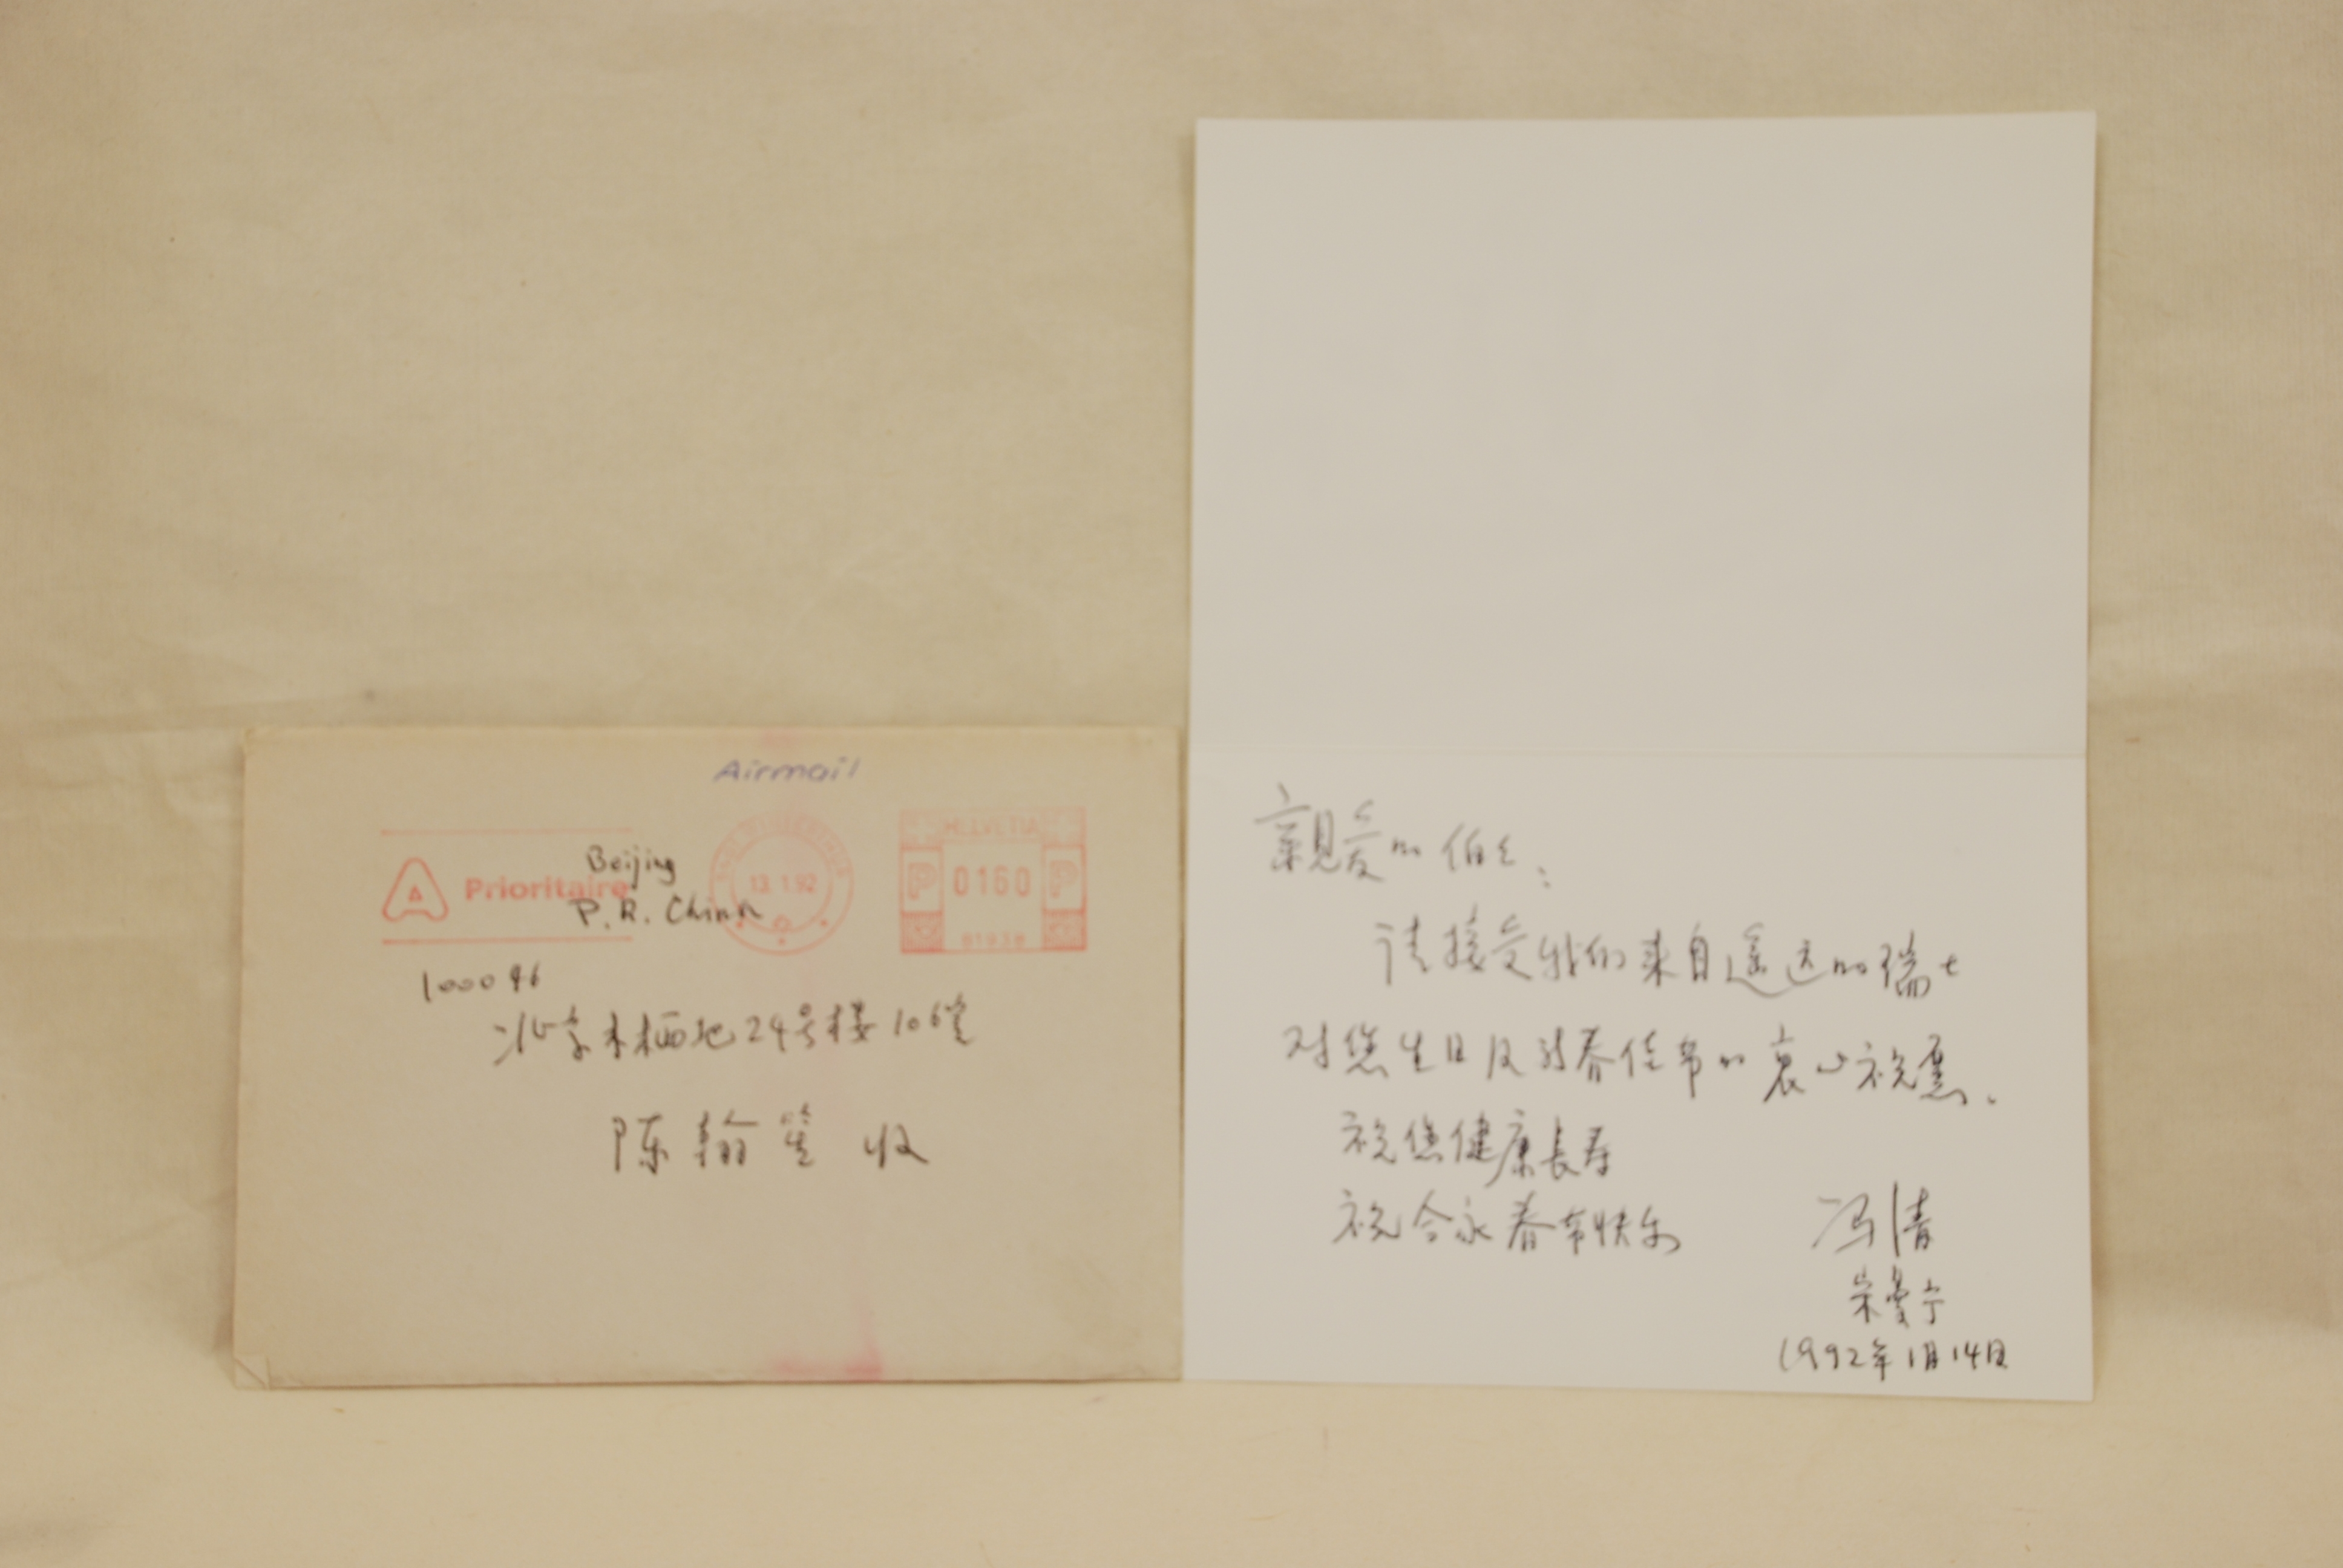 Airmail
HELVETIA
Prioritaire
13.1.92
P 0160 P
Beijing
P.R. China
北京木樨地24号楼106室
陈翰笙 收
亲爱的伯伯:
请接受我们来自遥远的瑞士
对您生日及新春佳节的衷心祝愿.
祝您健康长寿
祝合家春节快乐
冯清
宋曼宁
1992年1月14日